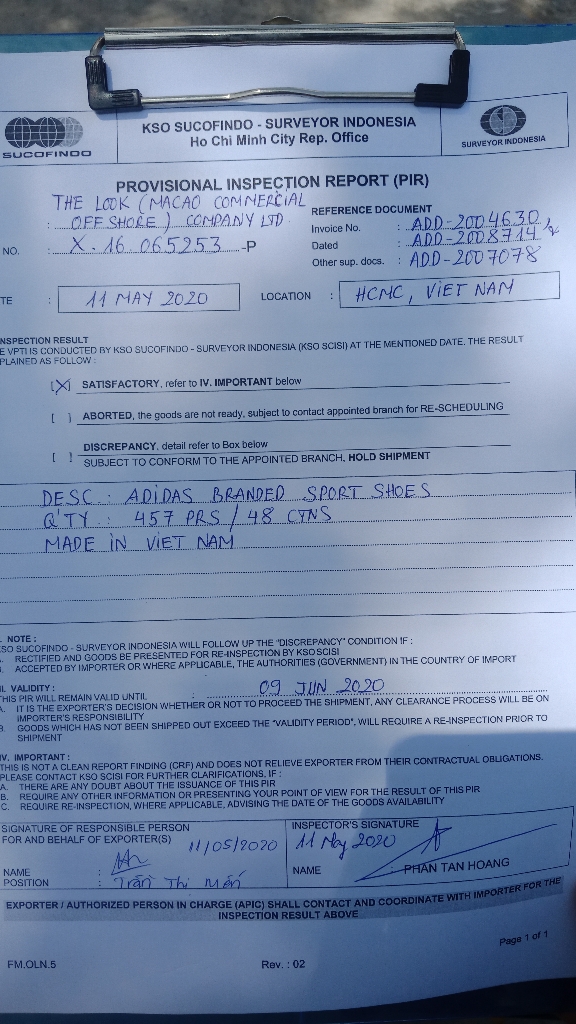 SUCOFINDO
KSO SUCOFINDO - SURVEYOR INDONESIA
Ho Chi Minh City Rep. Office
SURVEYOR INDONESIA
PROVISIONAL INSPECTION REPORT (PIR)
THE LOOK (MACAO COMMERCIAL
: OFF SHORE) COMPANY LTD.
NO. : X.16.065253 -P
REFERENCE DOCUMENT
Invoice No. : ADD-2004630,
Dated : ADD-2008714 &
Other sup. docs. : ADD-2007078
TE : 11 MAY 2020
LOCATION : HCMC, VIET NAM
NSPECTION RESULT
E VPTI IS CONDUCTED BY KSO SUCOFINDO - SURVEYOR INDONESIA (KSO SCISI) AT THE MENTIONED DATE. THE RESULT
PLAINED AS FOLLOW :
[X] SATISFACTORY, refer to IV. IMPORTANT below
[ ] ABORTED, the goods are not ready, subject to contact appointed branch for RE-SCHEDULING
[ ] DISCREPANCY, detail refer to Box below
SUBJECT TO CONFORM TO THE APPOINTED BRANCH, HOLD SHIPMENT
DESC : ADIDAS BRANDED SPORT SHOES
Q'TY : 457 PRS / 48 CTNS
MADE IN VIET NAM
. NOTE :
SO SUCOFINDO - SURVEYOR INDONESIA WILL FOLLOW UP THE "DISCREPANCY" CONDITION IF :
RECTIFIED AND GOODS BE PRESENTED FOR RE-INSPECTION BY KSO SCISI
ACCEPTED BY IMPORTER OR WHERE APPLICABLE, THE AUTHORITIES (GOVERNMENT) IN THE COUNTRY OF IMPORT
II. VALIDITY :
THIS PIR WILL REMAIN VALID UNTIL : 09 JUN 2020
A. IT IS THE EXPORTER'S DECISION WHETHER OR NOT TO PROCEED THE SHIPMENT, ANY CLEARANCE PROCESS WILL BE ON
IMPORTER'S RESPONSIBILITY
B. GOODS WHICH HAS NOT BEEN SHIPPED OUT EXCEED THE "VALIDITY PERIOD", WILL REQUIRE A RE-INSPECTION PRIOR TO
SHIPMENT
IV. IMPORTANT :
THIS IS NOT A CLEAN REPORT FINDING (CRF) AND DOES NOT RELIEVE EXPORTER FROM THEIR CONTRACTUAL OBLIGATIONS.
PLEASE CONTACT KSO SCISI FOR FURTHER CLARIFICATIONS, IF :
A. THERE ARE ANY DOUBT ABOUT THE ISSUANCE OF THIS PIR
B. REQUIRE ANY OTHER INFORMATION OR PRESENTING YOUR POINT OF VIEW FOR THE RESULT OF THIS PIR
C. REQUIRE RE-INSPECTION, WHERE APPLICABLE, ADVISING THE DATE OF THE GOODS AVAILABILITY
SIGNATURE OF RESPONSIBLE PERSON
FOR AND BEHALF OF EXPORTER(S) 11/05/2020
NAME :
POSITION : Trần Thị
INSPECTOR'S SIGNATURE
11 May 2020
NAME : PHAN TAN HOANG
EXPORTER / AUTHORIZED PERSON IN CHARGE (APIC) SHALL CONTACT AND COORDINATE WITH IMPORTER FOR THE
INSPECTION RESULT ABOVE
Page 1 of 1
FM.OLN.5
Rev. : 02